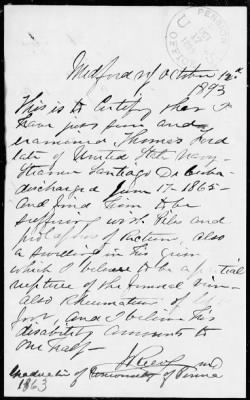 Medford NJ October 12th
1893
This is to Certify that I
have just seen and
examined Thomas Ford
late of United State Navy
Steamer Santiago De Cuba
discharged June 17-1865-
and find him to be
suffering with Piles and
prolapsus of Rectum, also
a swelling in his Groin
which I believe to be a partial
rupture of the
also Rheumatism of
foot, and I believe his
disability amounts to
one half-
MD
Graduate of University of Penna
1863
PENSION